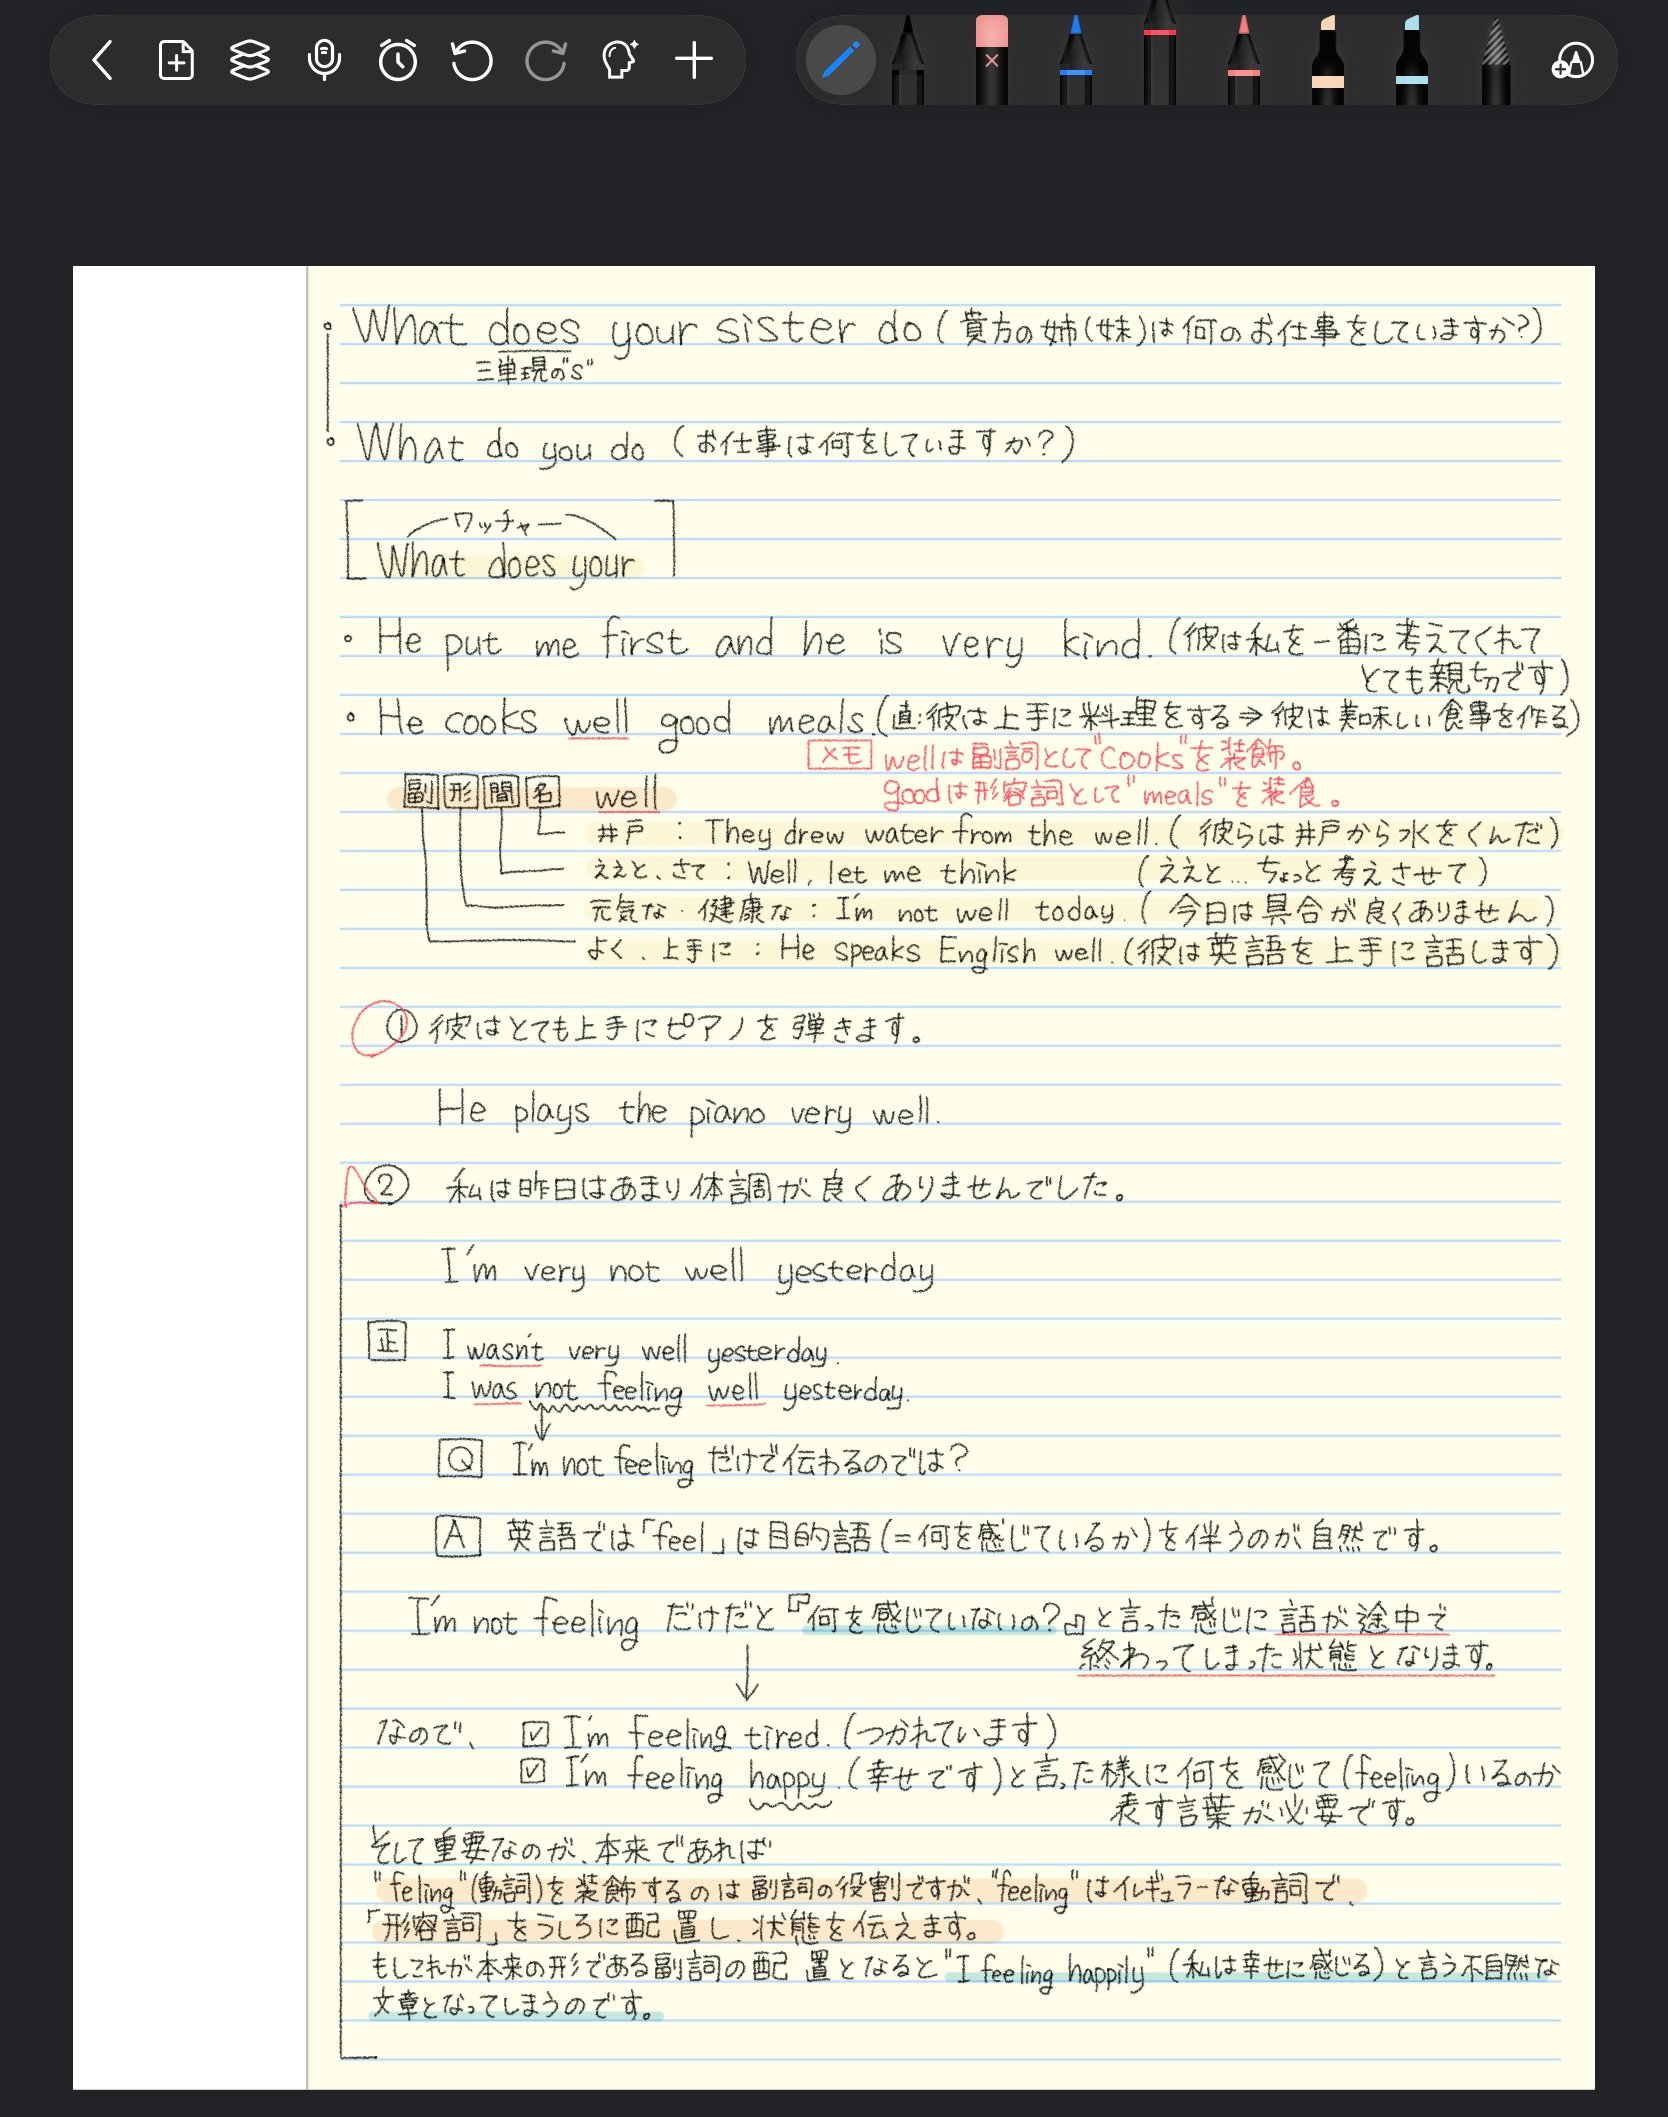 What does your sister do (貴方の姉(妹)は何のお仕事をしていますか?)
三単現の"s"
What do you do (お仕事は何をしていますか?)
ワッチャー
What does your
He put me first and he is very kind. (彼は私を一番に考えてくれて
とても親切です)
He cooks well good meals. (直:彼は上手に料理をする⇒彼は美味しい食事を作る)
メモ wellは副詞として"cooks"を装飾。
goodは形容詞として"meals"を装食。
副 形 間 名 well
井戸 : They drew water from the well. (彼らは井戸から水をくんだ)
ええと、さて : Well, let me think (ええと...ちょっと考えさせて)
元気な・健康な : I'm not well today. (今日は具合が良くありません)
よく、上手に : He speaks English well. (彼は英語を上手に話します)
① 彼はとても上手にピアノを弾きます。
He plays the piano very well.
② 私は昨日はあまり体調が良くありませんでした。
I'm very not well yesterday
正 I wasn't very well yesterday.
I was not feeling well yesterday.
↓
Q I'm not feeling だけで伝わるのでは?
A 英語では「feel」は目的語(=何を感じているか)を伴うのが自然です。
I'm not feeling だけだと『何を感じていないの?』と言った感じに話が途中で
終わってしまった状態となります。
↓
なので、 ☑ I'm feeling tired. (つかれています)
☑ I'm feeling happy. (幸せです)と言った様に何を感じて(feeling)いるのか
表す言葉が必要です。
そして重要なのが、本来であれば
"feling"(動詞)を装飾するのは副詞の役割ですが、"feeling"はイレギュラーな動詞で、
「形容詞」をうしろに配置し、状態を伝えます。
もしこれが本来の形である副詞の配置となると"I feeling happily"(私は幸せに感じる)と言う不自然な
文章となってしまうのです。